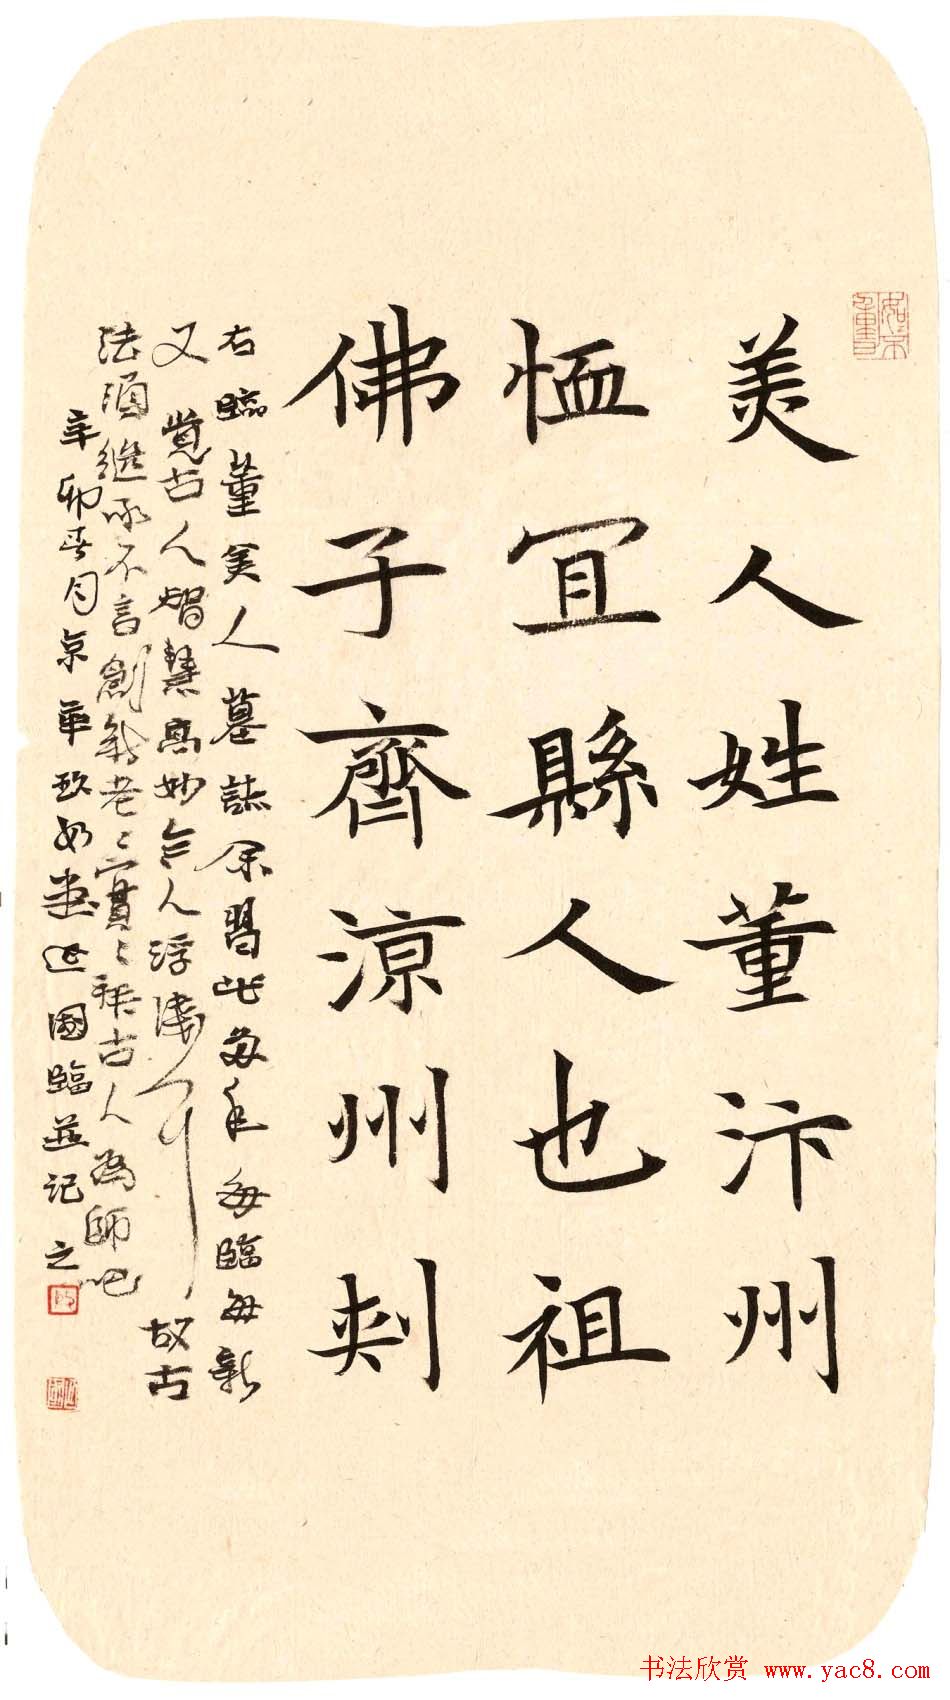 美人姓董汴州
恤冝縣人也祖
佛子齊涼州刾
右臨董美人墓誌余習此多年每臨每新
又覺古人智慧高妙今人浮淺耳故古
法須繼承不言創新老老實實拜古人為師吧
辛卯春月京華國臨並记之
书法欣赏 www.yac8.com